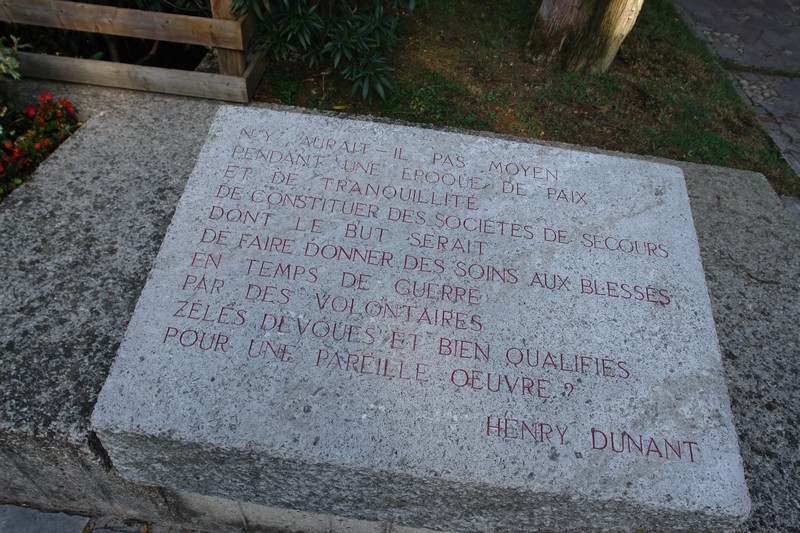 N'Y AURAIT-IL PAS MOYEN
PENDANT UNE EPOQUE DE PAIX
ET DE TRANQUILLITÉ
DE CONSTITUER DES SOCIÉTÉS DE SECOURS
DONT LE BUT SERAIT
DE FAIRE DONNER DES SOINS AUX BLESSÉS
EN TEMPS DE GUERRE
PAR DES VOLONTAIRES
ZÉLÉS DÉVOUÉS ET BIEN QUALIFIÉS
POUR UNE PAREILLE OEUVRE ?
HENRY DUNANT